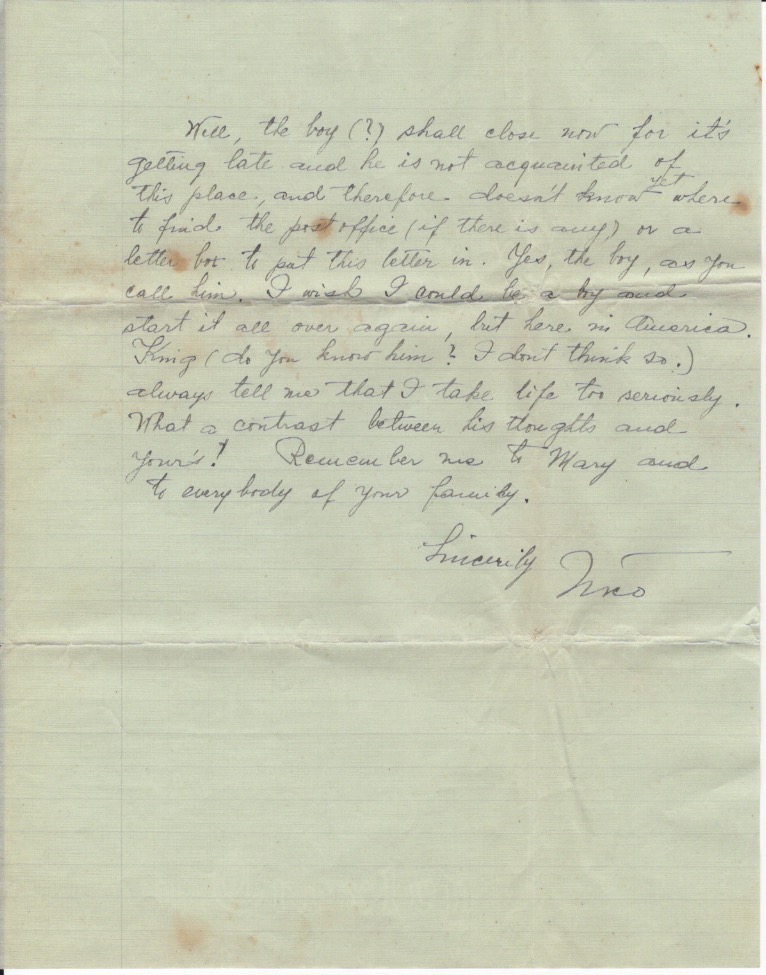 Well, the boy (?) shall close now for it's
getting late and he is not acquainted of
this place, and therefore doesn't know yet where
to find the post office (if there is any) or a
letter box to put this letter in. Yes, the boy, as you
call him. I wish I could be a boy and
start it all over again, but here in America.
King (do you know him? I dont think so.)
always tell me that I take life too seriously.
What a contrast between his thoughts and
your's! Remember me to Mary and
to everybody of your family.
Sincerily